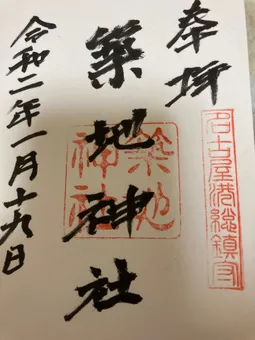 奉拝
名古屋港総鎮守
築地神社
築地
神社
令和二年一月十九日